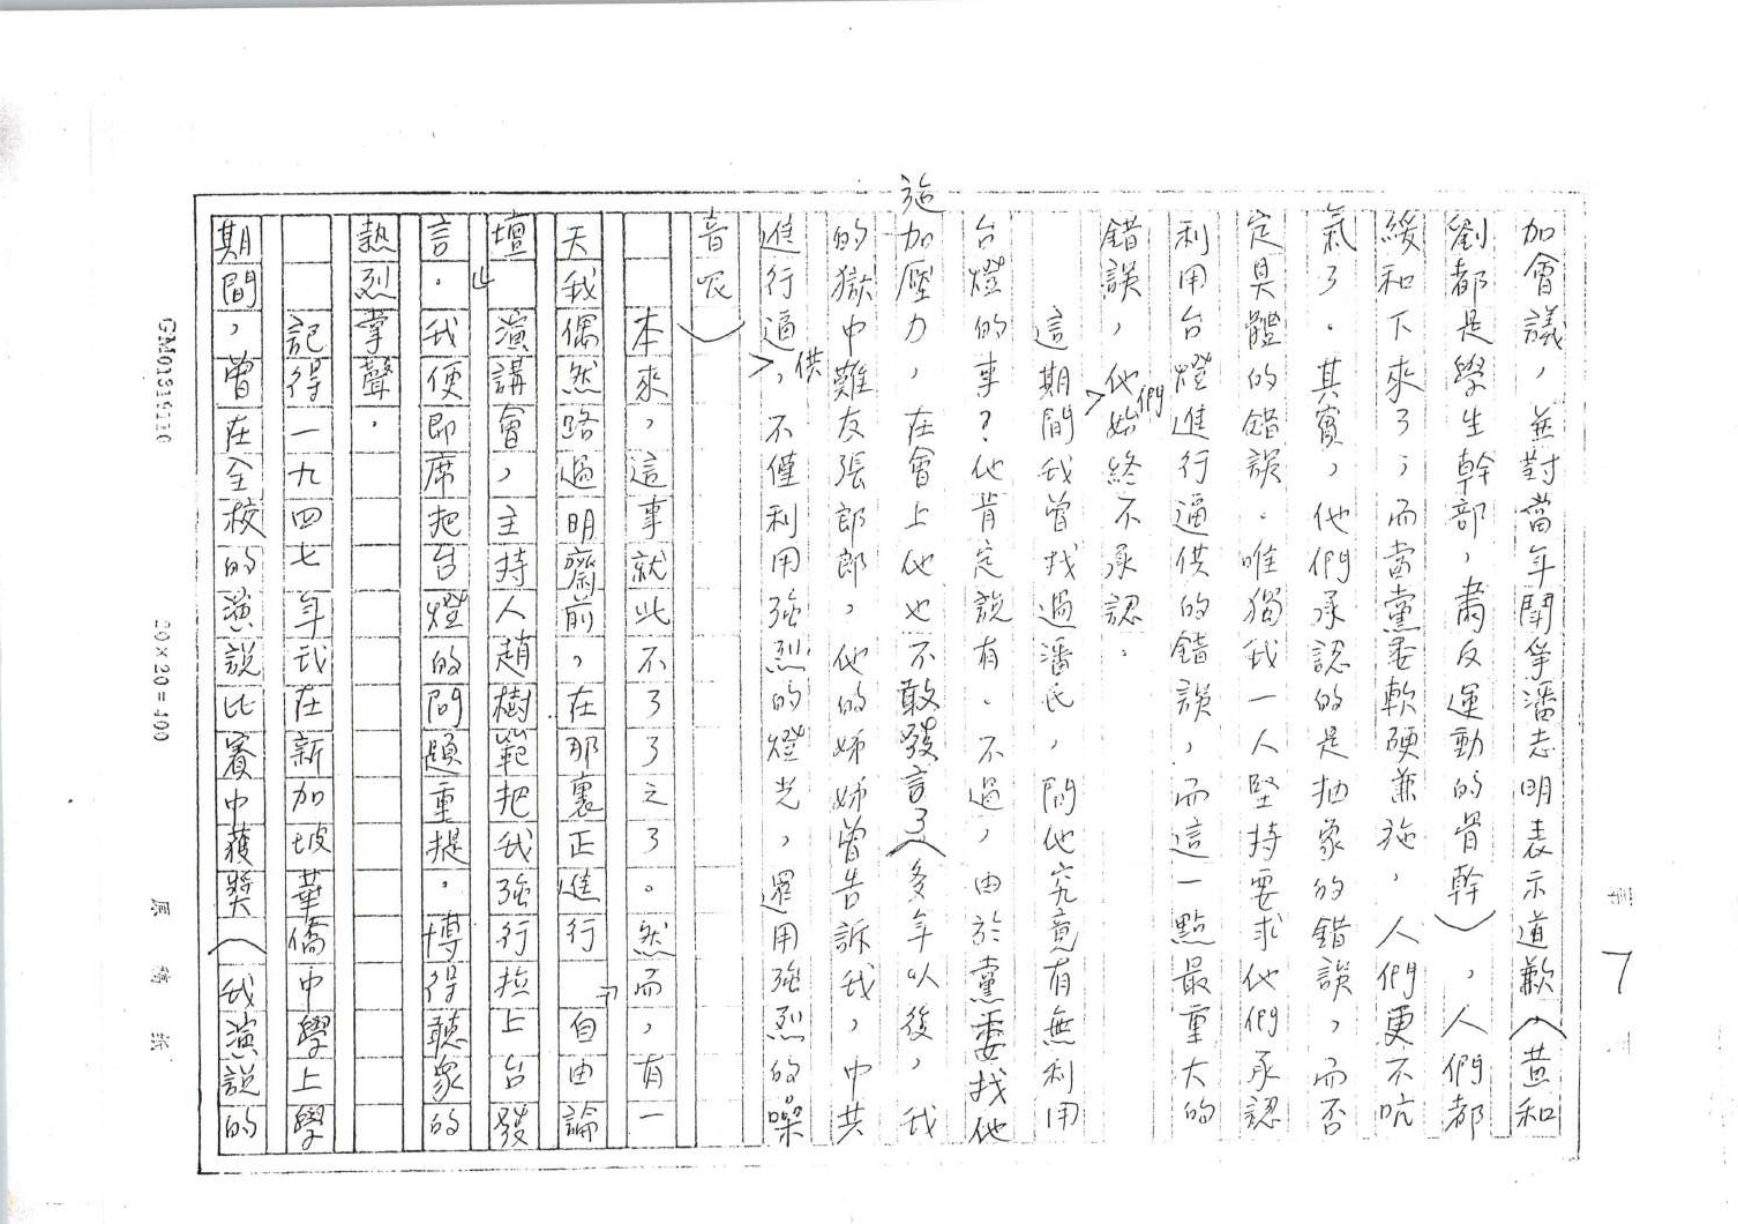 加會議，並對當年鬥爭潘志明表示道歉，（黄和
劉都是學生幹部，肅反運動的骨幹），人們都
緩和下來了；而當黨委軟硬兼施，人們更不吭
氣了．其實，他們承認的是抽象的錯誤，而否
定具體的錯誤．唯獨我一人堅持要求他們承認
利用台燈進行逼供的錯誤，而這一點最重大的
錯誤，他們始終不承認．
這期間我曾找過潘氏，問他究竟有無利用
台燈的事？他肯定說有．不過，由於黨委找他
施加壓力，在會上他也不敢發言了（多年以後，我
的獄中難友張郎郎，他的姊姊曾告訴我，中共
進行逼供，不僅利用強烈的燈光，還用強烈的噪
音呢）
本來，這事就此不了了之了。然而，有一
天我偶然路過明齋前，在那裏正進行『自由論
壇』演講會，主持人趙樹範把我強行拉上台發
言．我便即席把台燈的問題重提．博得聽衆的
熱烈掌聲．
記得一九四七年我在新加坡華僑中學上學
期間，曾在全校的演說比賽中獲獎（我演説的
7
GM01319110
20×20=400
原稿紙